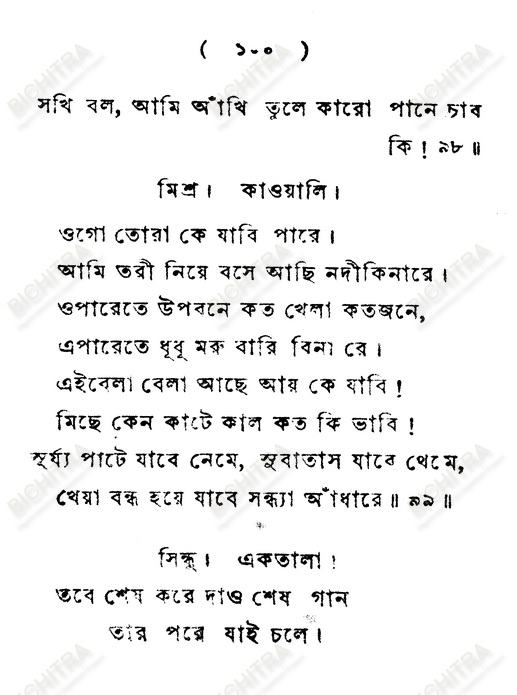 ( ১০০ )
সখি বল, আমি আঁখি তুলে কারো পানে চাব
কি ! ৯৮ ॥
মিশ্র। কাওয়ালি।
ওগো তোরা কে যাবি পারে।
আমি তরী নিয়ে বসে আছি নদীকিনারে।
ওপারেতে উপবনে কত খেলা কতজনে,
এপারেতে ধূধূ মরু বারি বিনা রে।
এইবেলা বেলা আছে আয় কে যাবি !
মিছে কেন কাটে কাল কত কি ভাবি !
সূর্য্য পাটে যাবে নেমে, সুবাতাস যাবে থেমে,
খেয়া বন্ধ হয়ে যাবে সন্ধ্যা আঁধারে॥ ৯৯॥
সিন্ধু। একতালা !
তবে শেষ করে দাও শেষ গান
তার পরে যাই চলে।